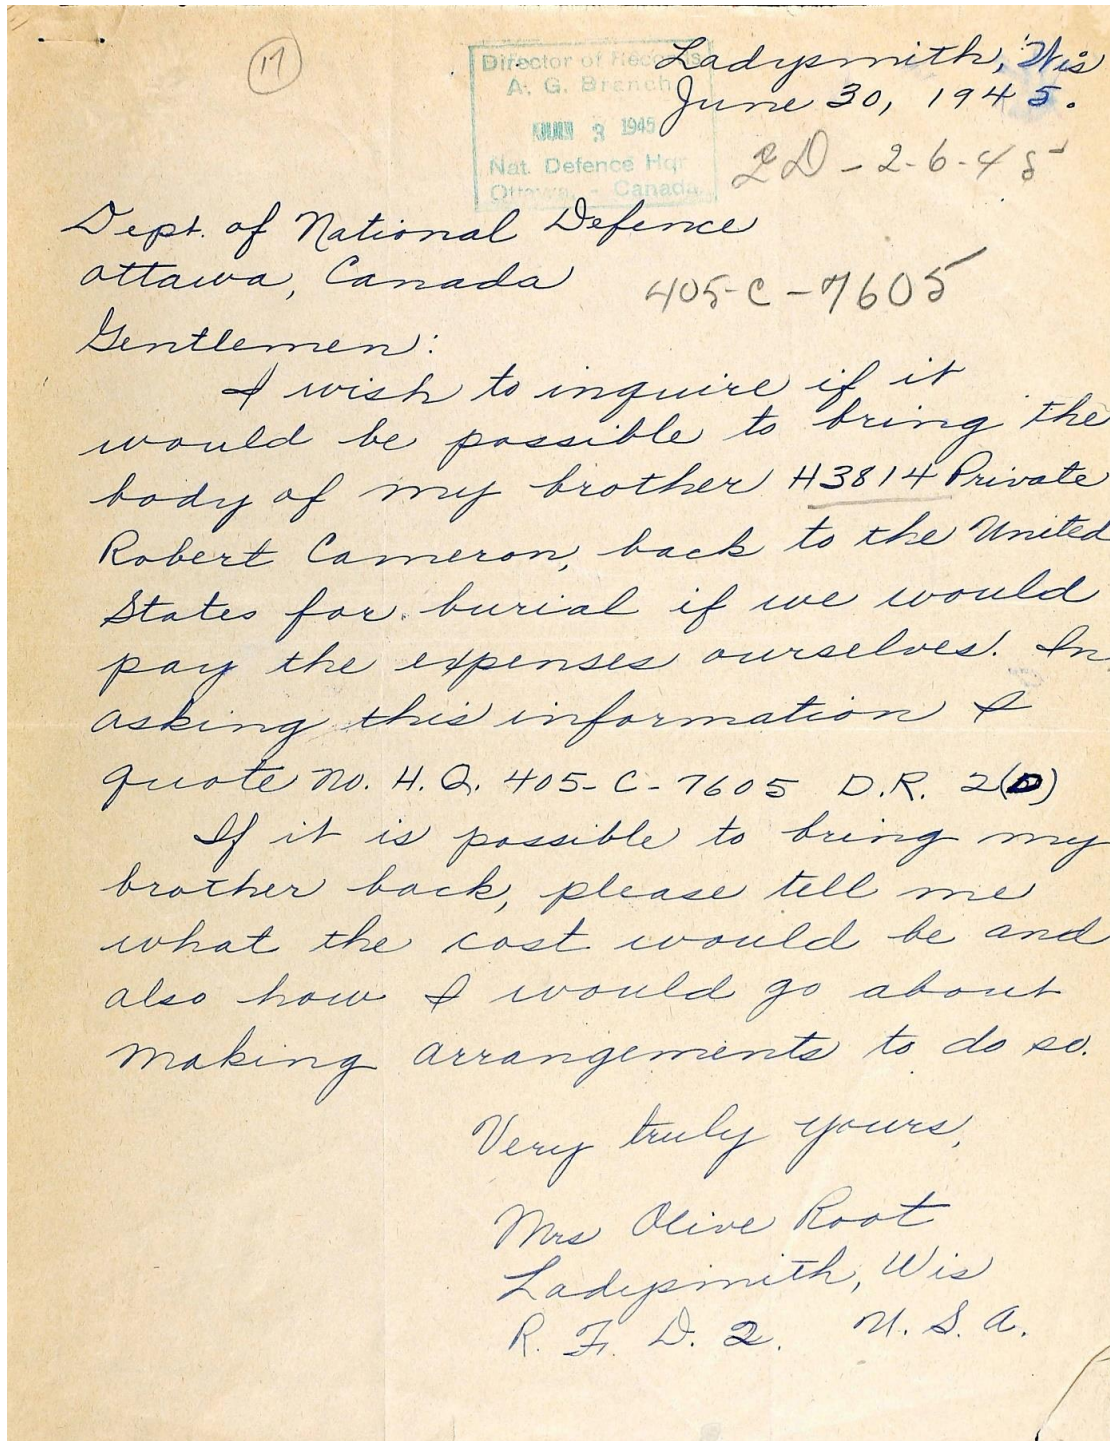 17
Director of Records
A. G. Branch
3 1945
Nat. Defence Hqr
Ottawa - Canada
Ladysmith, Wis
June 30, 1945.
2D-2-6-45
Dept. of National Defence
Ottawa, Canada
405-C-7605
Gentlemen:
I wish to inquire if it
would be possible to bring the
body of my brother H3814 Private
Robert Cameron, back to the United
States for burial if we would
pay the expenses ourselves. In
asking this information I
quote No. H.Q. 405-C-7605 D.R. 2(D)
If it is possible to bring my
brother back, please tell me
what the cost would be and
also how I would go about
making arrangements to do so.
Very truly yours,
Mrs Olive Root
Ladysmith, Wis
R. F. D. 2. U. S. A.